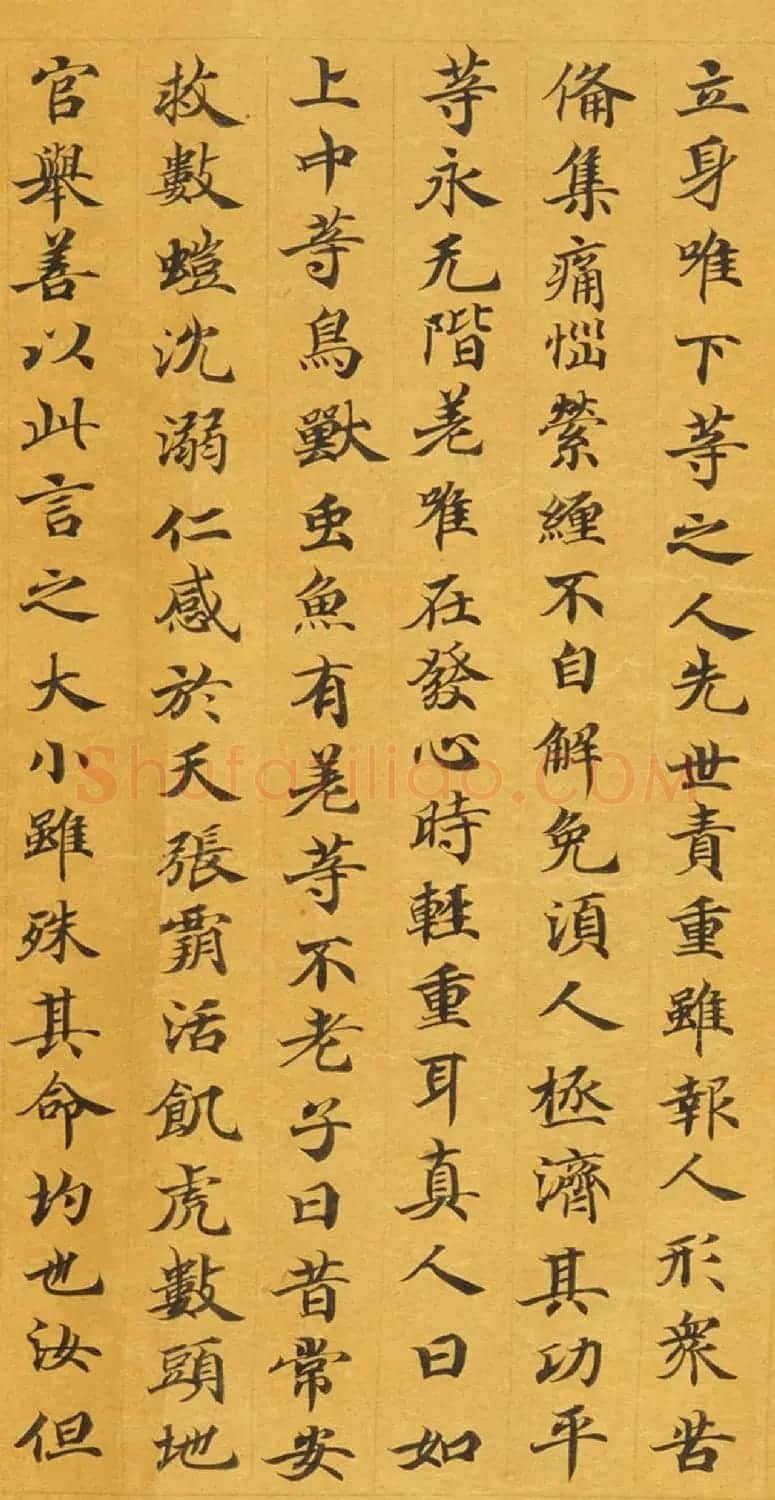 立身唯下等之人先世責重雖報人形衆苦
俻集痛惱縈纏不自解免湏人拯濟其功平
等永无階差唯在發心時輕重耳真人曰如
上中等鳥獸虫魚有差等不老子曰昔常安
救數螘沈溺仁感於天張霸活飢虎數頭地
官舉善以此言之大小雖殊其命均也汝但
Shufaziliao.COM